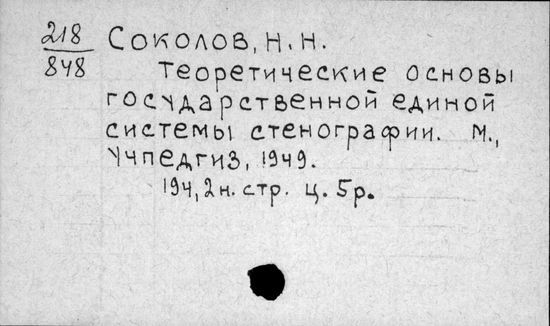 218 Соколов, Н. Н.
848 Теоретические основы
государственной единой
системы стенографии. М.,
Учпедгиз, 1949.
194, 2 н. стр. ц. 5 р.